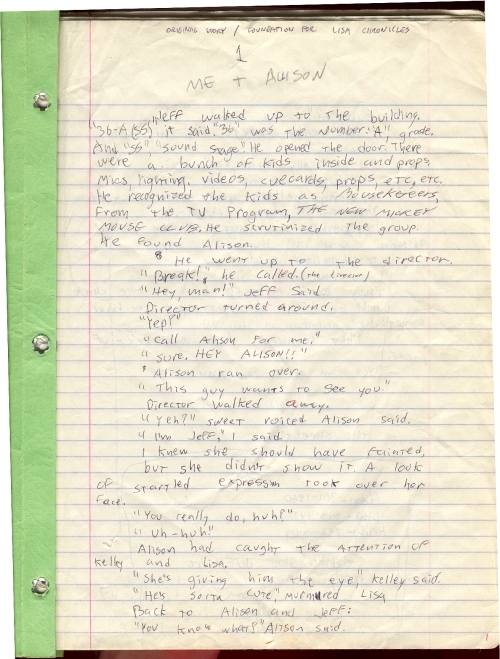 ORIGINAL STORY / FOUNDATION FOR LISA CHRONICLES
1
ME + ALISON
Jeff walked up to the building.
"36-A (SS)" it said, "36" was the number. "A", grade.
And "SS", "Sound Stage." He opened the door. There
were a bunch of kids inside and props,
Mics, lighting, videos, cuecards, props, etc, etc.
He recognized the kids as Mouseketeers,
From the TV Program, THE NEW MICKEY
MOUSE CLUB. He scrutinized the group.
He found Alison.
He went up to the director.
"Break!", he called. (the director)
"Hey, man!" Jeff said.
Director turned around.
"Yep?"
"Call Alison for me."
"Sure. HEY ALISON!!"
Alison ran over.
"This guy wants to see you."
Director walked away.
"Yeh?" sweet voiced Alison said.
"I'm Jeff," I said.
I knew she should have fainted,
but she didn't show it. A look
of startled expression took over her
face.
"You really do, huh?"
"Uh-huh!"
Alison had caught the attention of
Kelley and Lisa.
"She's giving him the eye," Kelley said.
"He's sorta cute," murmured Lisa
Back to Alison and Jeff:
"You know what?" Alison said.